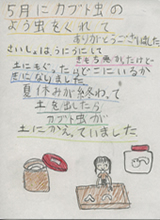 5月にカブト虫の
よう虫をくれて
ありがとうございました
さいしょはうにうにして
きもち悪かったけど
土にもぐったらどこにいるか
気になりました
夏休みが終わって
土を出したら
カブト虫が
土にかえっていました